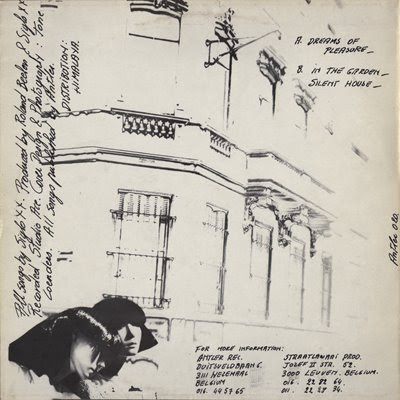 A. DREAMS OF
PLEASURE_
B. IN THE GARDEN_
SILENT HOUSE_
All songs by Siglo XX. Produced by Roland Beelen & Siglo XX.
Recorded Studio Ace. Cover Design & Photography: Tone
Coenders. All songs published by Antler.
DISTRIBUTION:
HIMALAYA.
Antler
FOR MORE INFORMATION:
ANTLER REC.
DUITSVELDBAAN 6.
3111 WEZEMAAL
BELGIUM
016. 44 57 65
STRAATLAWAAI PROD.
JOZEF II STR. 52.
3000 LEUVEN. BELGIUM.
016. 22 82 64.
011. 22 27 34.